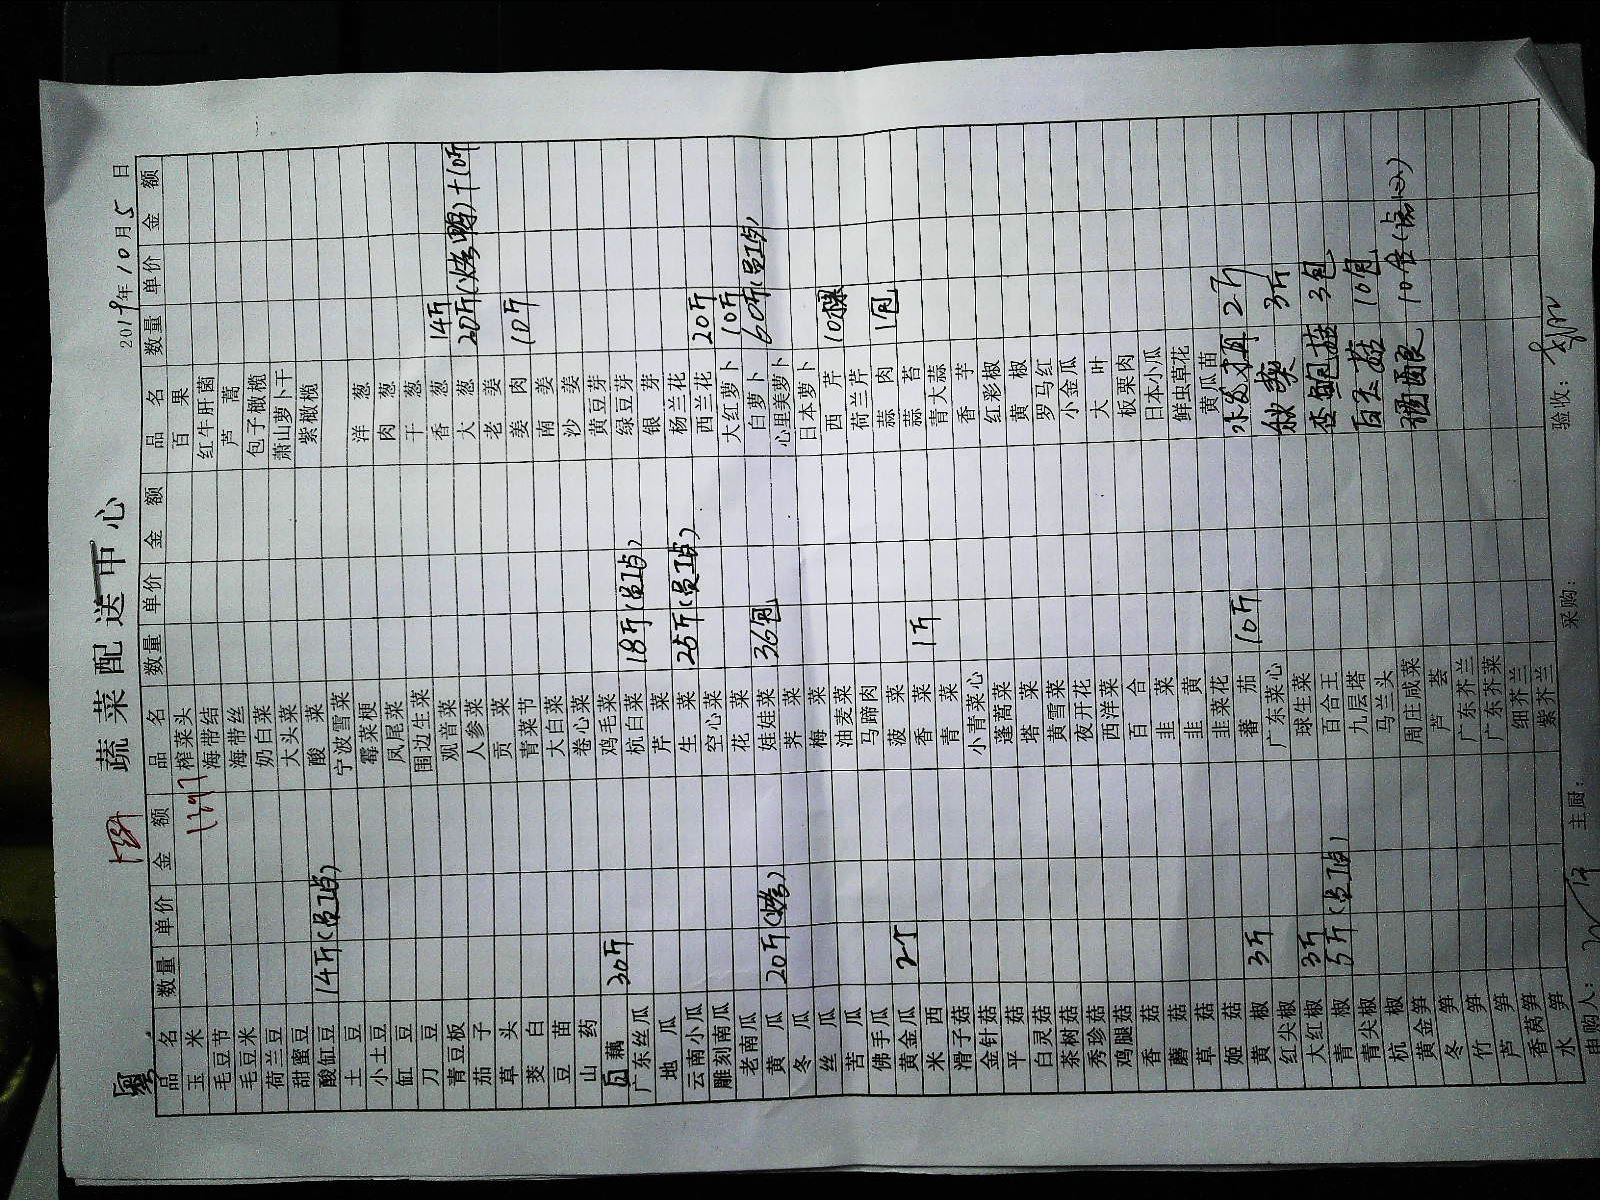 粤 蔬菜配送中心 2019年10月5日
品名 数量 单价 金额 品名 数量 单价 金额 品名 数量 单价 金额
玉米 榨菜头 百果
毛豆节 海带结 红牛肝菌
毛豆米 海带丝 芦蒿
荷兰豆 奶白菜 包子橄榄
甜蜜豆 大头菜 萧山萝卜干
酸缸豆 14斤(员工点) 酸菜 紫橄榄
土豆 宁波雪菜
小土豆 霉菜梗 洋葱
缸豆 凤尾菜 肉葱
刀豆 围边生菜 干葱
青豆板 观音菜 香葱 14斤
茄子 人参菜 大葱 20斤(烤鸭)+10斤
草头 贡菜 老姜
茭白 青菜节 姜肉 10斤
豆苗 大白菜 南姜
山药 卷心菜 沙姜
白藕 30斤 鸡毛菜 黄豆芽
广东丝瓜 杭白菜 18斤(员工点) 绿豆芽
地瓜 芹菜 银芽
云南小瓜 生菜 25斤(员工点) 杨兰花
雕刻南瓜 空心菜 西兰花 20斤
老南瓜 花菜 大红萝卜 10斤
黄瓜 20斤(烤) 娃娃菜 36包 白萝卜 60斤(员工点)
冬瓜 荠菜 心里美萝卜
丝瓜 梅菜 日本萝卜
苦瓜 油麦菜 西芹 10棵
佛手瓜 马蹄肉 荷兰芹
黄金瓜 2个 菠菜 蒜肉 1包
米西 香菜 1斤 蒜苔
滑子菇 青菜 青大蒜
金针菇 小青菜心 香芋
平菇 蓬蒿菜 红彩椒
白灵菇 塔菜 黄椒
茶树菇 黄雪菜 罗马红
秀珍菇 夜开花 小金瓜
鸡腿菇 西洋菜 大叶
香菇 百合 板栗肉
蘑菇 韭菜 日本小瓜
草菇 韭黄 鲜虫草花
姬菇 韭菜花 黄瓜苗
黄椒 3斤 蕃茄 10斤 水发木耳 2斤
红尖椒 广东菜心 秋葵 3斤
大红椒 3斤 球生菜 杏鲍菇 3包
青椒 5斤(员工点) 百合王
青尖椒 九层塔 白玉菇 10包
杭椒 马兰头 酒酿 10盒(点心)
黄金笋 周庄咸菜
冬笋 芦荟
竹笋 广东芥兰
芦笋 广东芥菜
香莴笋 细芥兰
水笋 紫芥兰
申购人: 主厨: 采购: 验收: